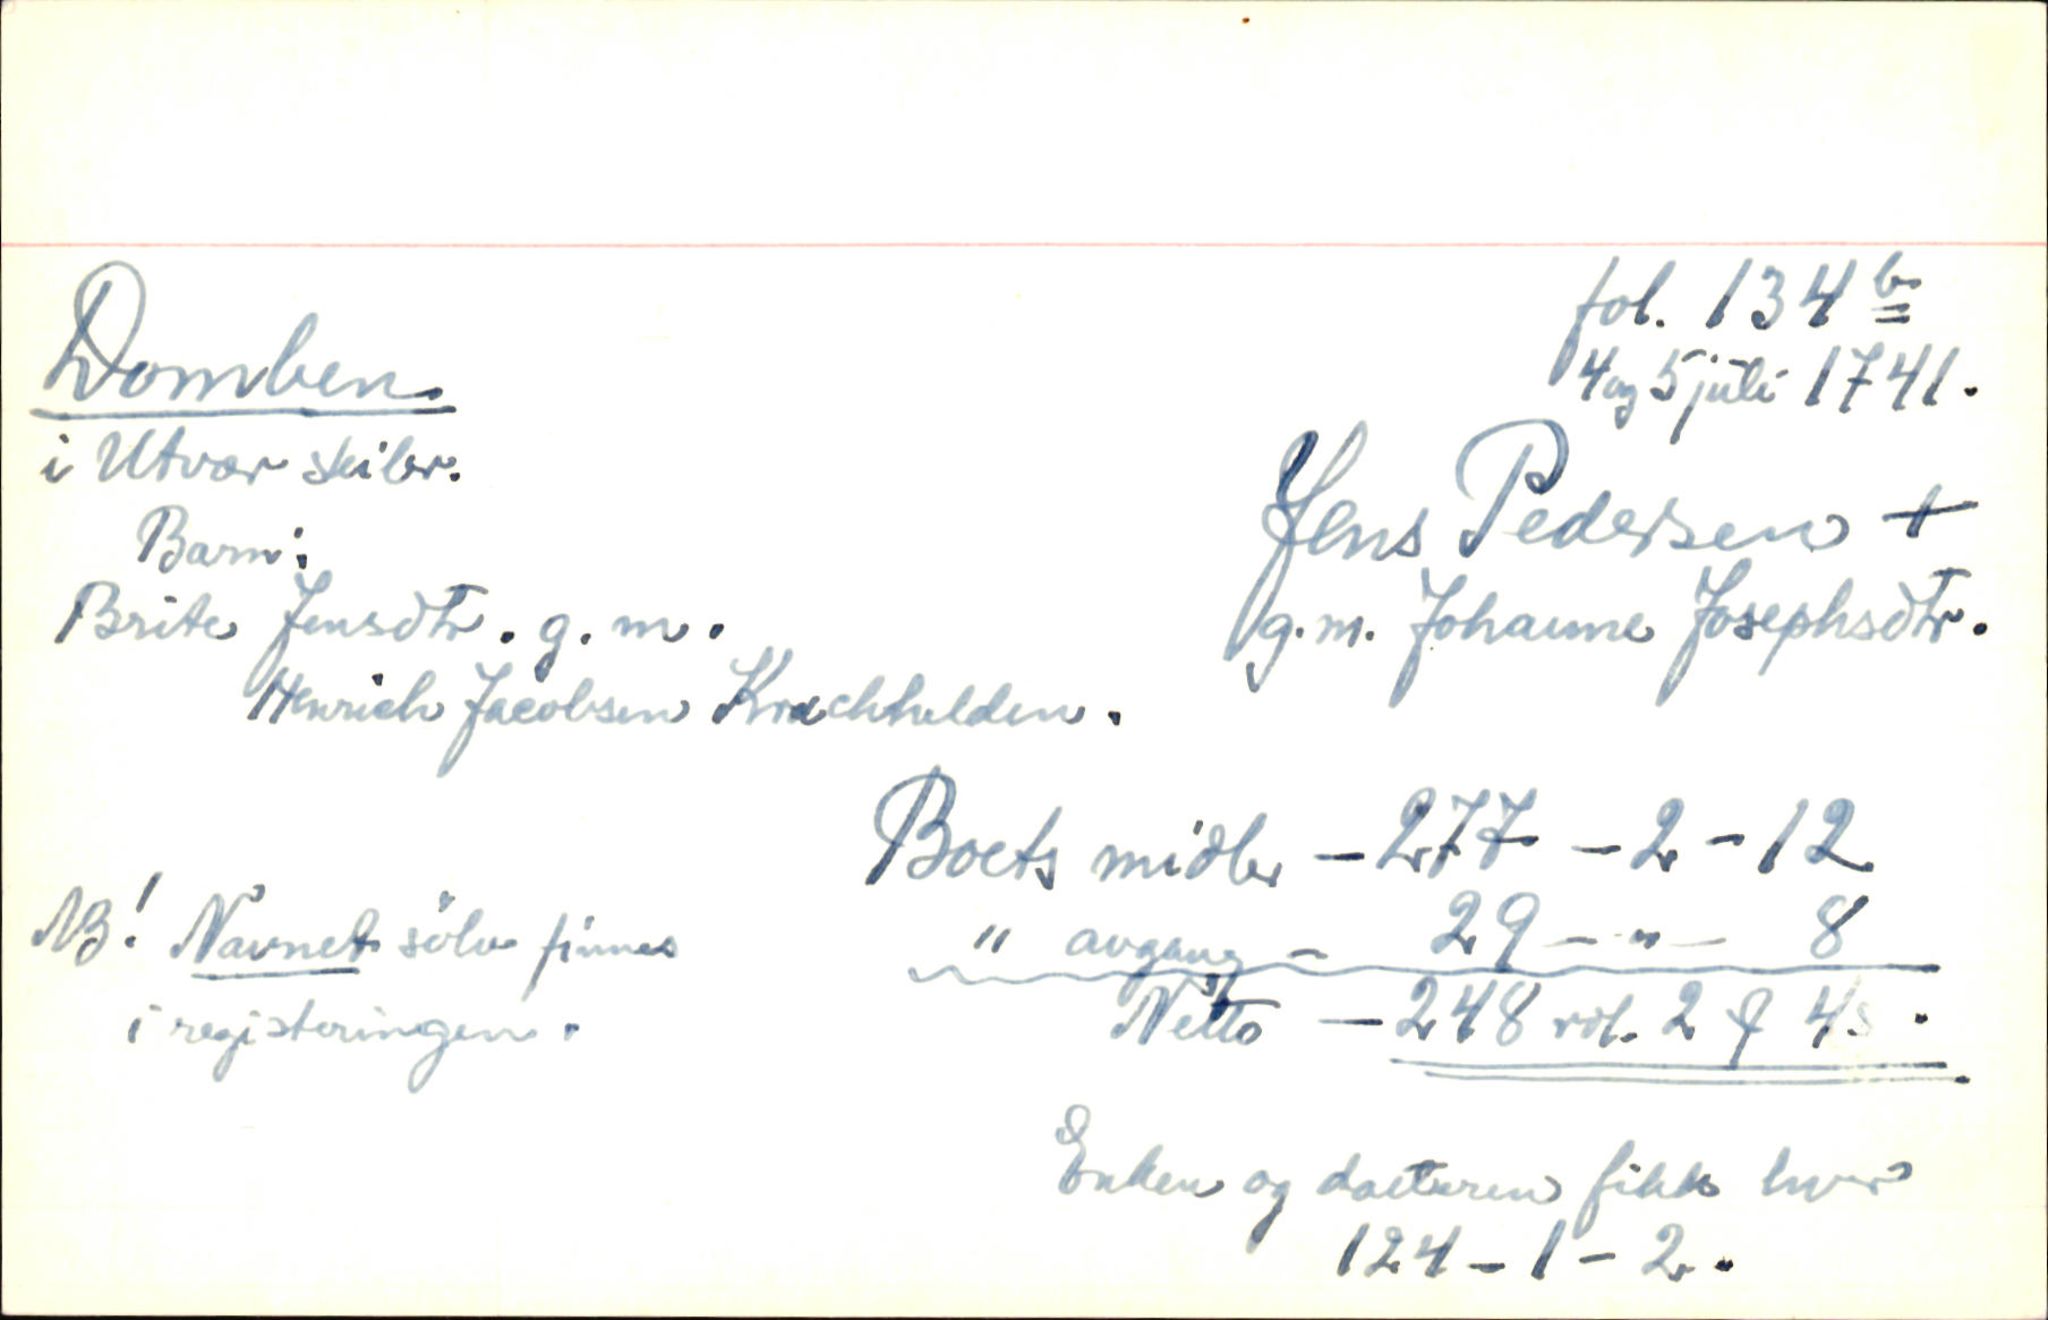 fol. 134 b
4 og 5 juli 1741.
Domben.
i Utvær skibr.
Jens Pedersen +
g.m. Johanne Josephsdtr.
Barn:
Brite Jensdtr. g.m.
Henrich Jacobsen Krachhelden.
Boets midler – 277 – 2 – 12
" avgang – 29 – " – 8
Netto – 248 rdl. 2 4 s.
NB! Navnet sölv finnes
i registeringen.
Enken og datteren fikk hver
124 – 1 – 2.